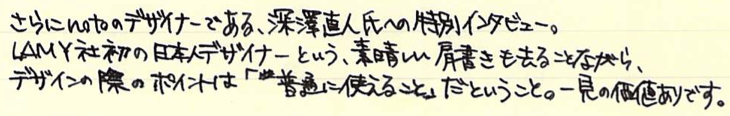 さらにnotoのデザイナーである、深澤直人氏への特別インタビュー。
LAMY社初の日本人デザイナーという、素晴しい肩書きも去ることながら、
デザインの際のポイントは「"普通に使えること」だということ。一見の価値ありです。